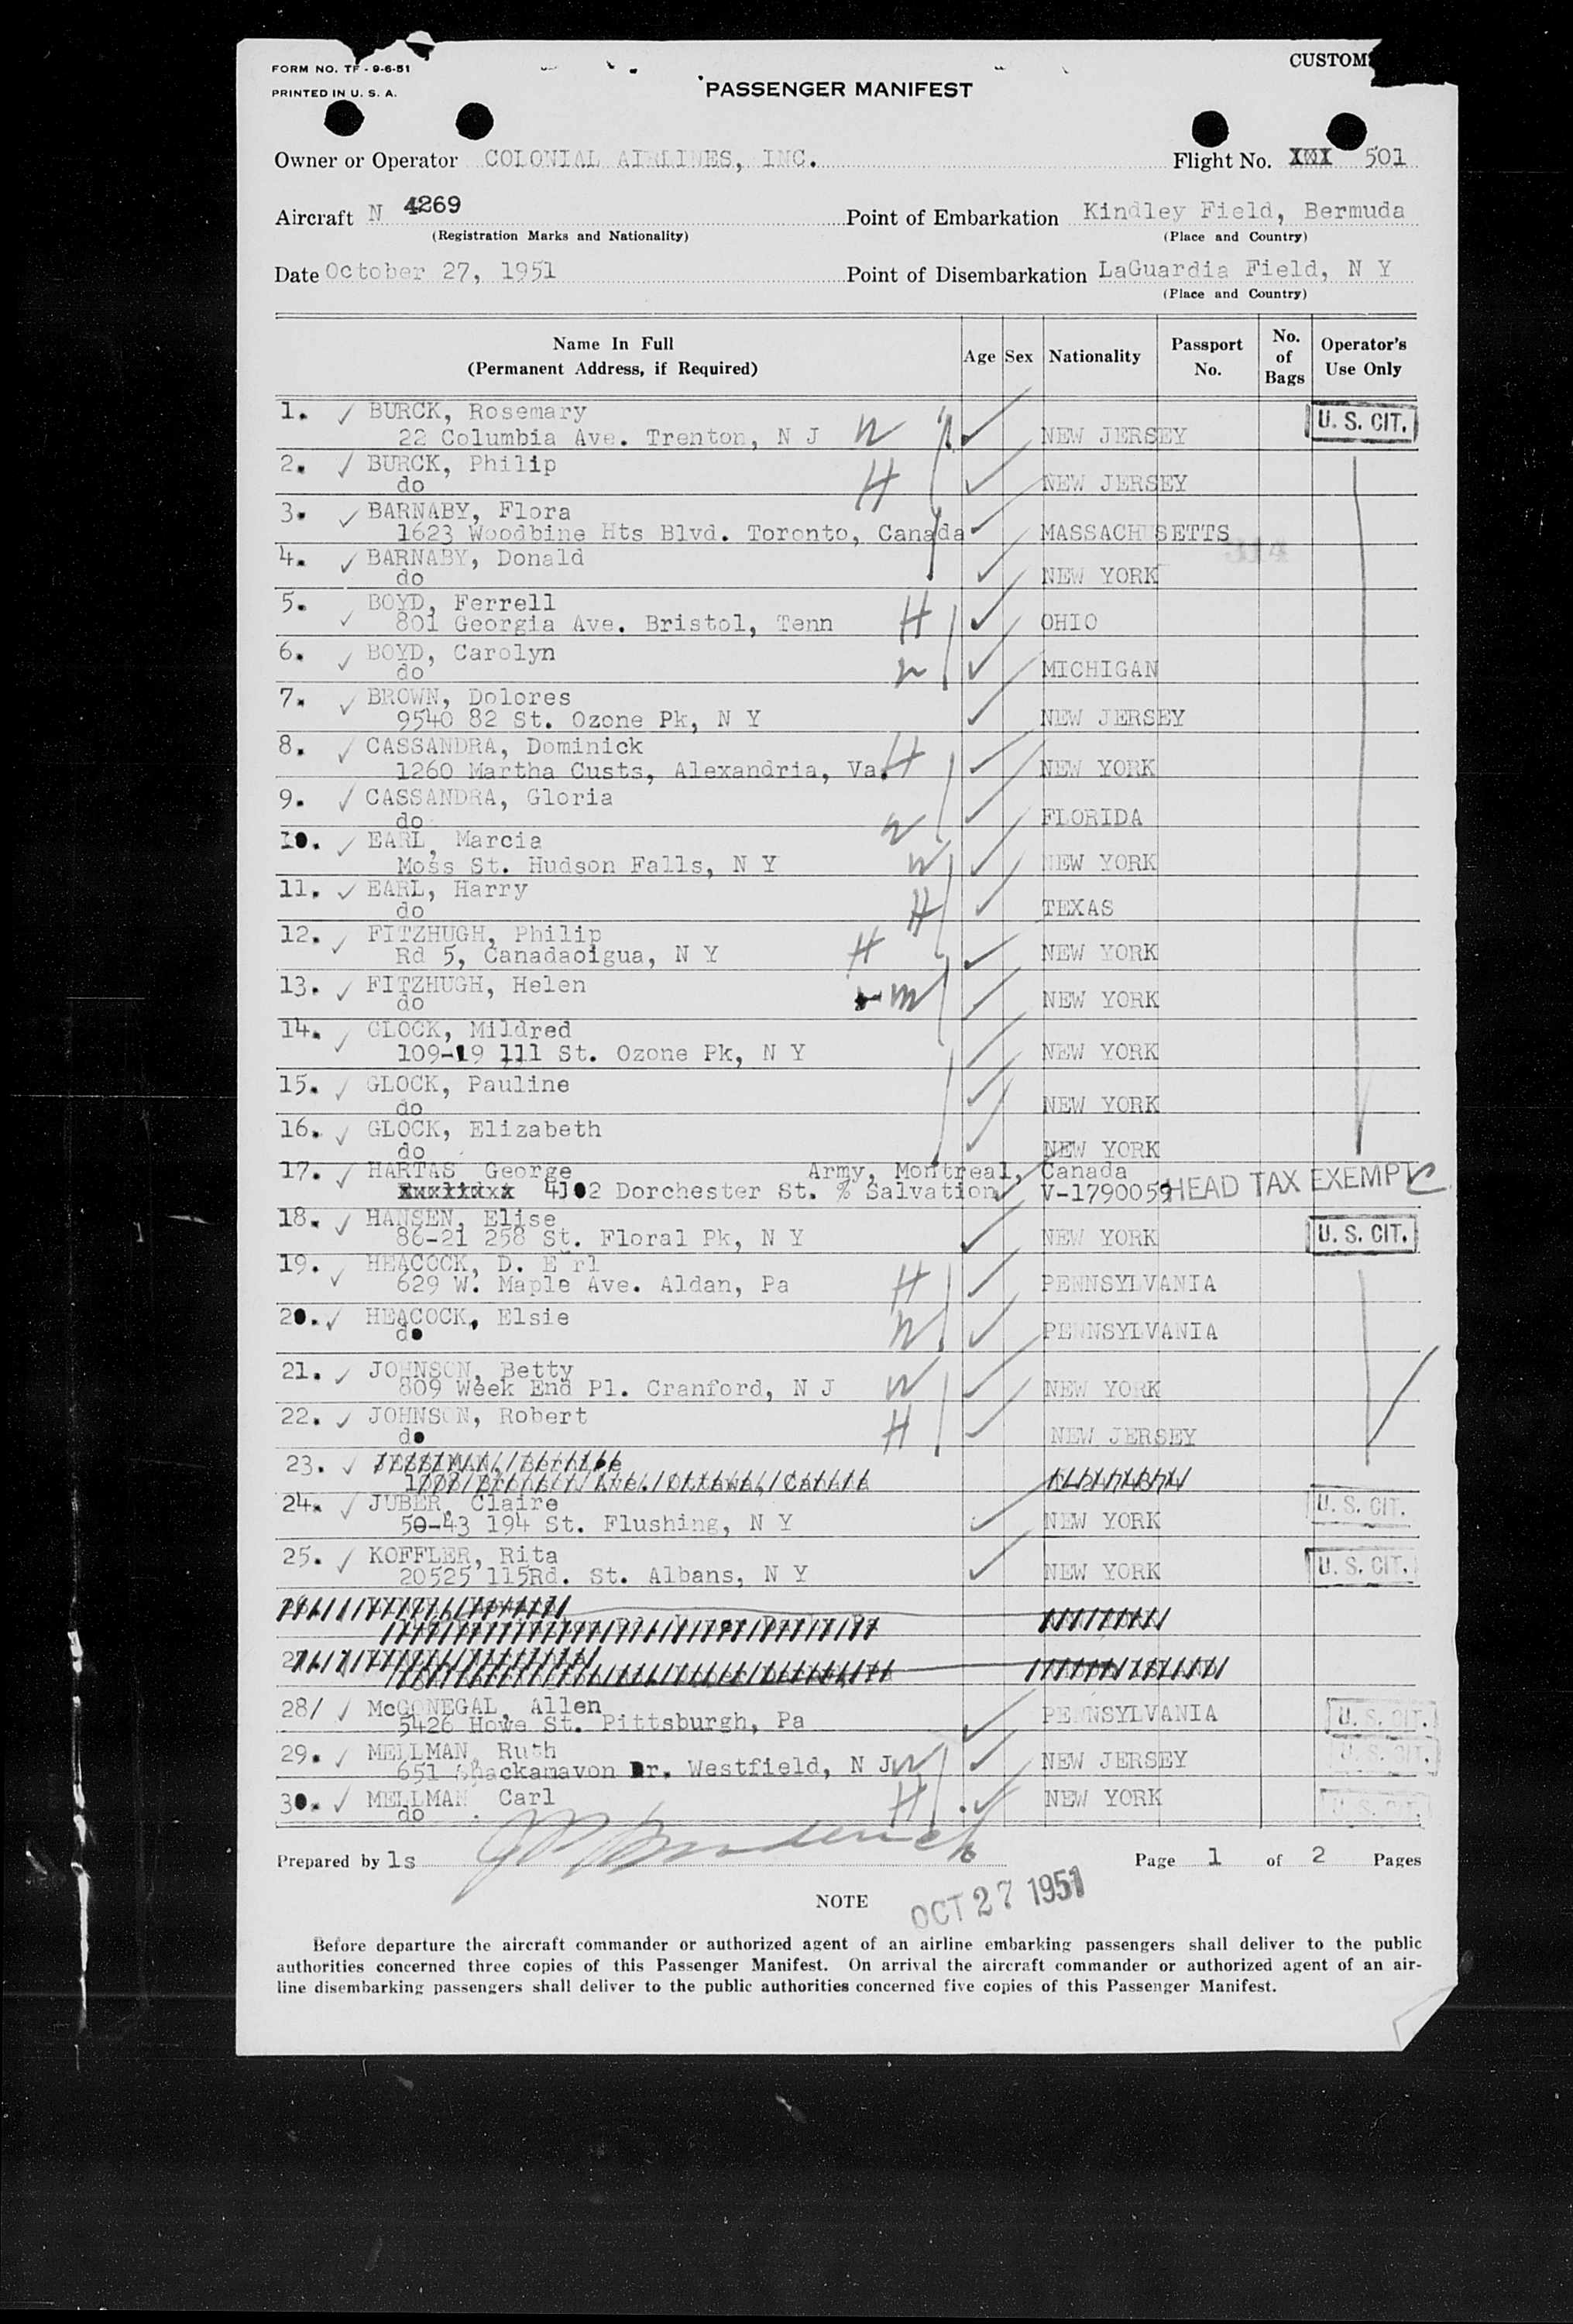 FORM NO. TF - 9-6-51
CUSTOMS
PRINTED IN U. S. A.
PASSENGER MANIFEST
Owner or Operator COLONIAL AIRLINES, INC. Flight No. 501
Aircraft N 4269 Point of Embarkation Kindley Field, Bermuda
(Registration Marks and Nationality) (Place and Country)
Date October 27, 1951 Point of Disembarkation LaGuardia Field, N Y
(Place and Country)
Name In Full (Permanent Address, if Required) Age Sex Nationality Passport No. No. of Bags Operator's Use Only
1. ✓ BURCK, Rosemary U. S. CIT.
22 Columbia Ave. Trenton, N J W NEW JERSEY
2. ✓ BURCK, Philip
do H NEW JERSEY
3. ✓ BARNABY, Flora
1623 Woodbine Hts Blvd. Toronto, Canada MASSACHUSETTS
4. ✓ BARNABY, Donald
do NEW YORK
5. BOYD, Ferrell
✓ 801 Georgia Ave. Bristol, Tenn H OHIO
6. ✓ BOYD, Carolyn
do W MICHIGAN
7. ✓ BROWN, Dolores
9540 82 St. Ozone Pk, N Y NEW JERSEY
8. ✓ CASSANDRA, Dominick
1260 Martha Custs, Alexandria, Va. H NEW YORK
9. ✓ CASSANDRA, Gloria
do W FLORIDA
10. ✓ EARL, Marcia
Moss St. Hudson Falls, N Y W NEW YORK
11. ✓ EARL, Harry
do H TEXAS
12. ✓ FITZHUGH, Philip
Rd 5, Canadaoigua, N Y H NEW YORK
13. ✓ FITZHUGH, Helen
do NEW YORK
14. ✓ CLOCK, Mildred
109-19 111 St. Ozone Pk, N Y NEW YORK
15. ✓ GLOCK, Pauline
do NEW YORK
16. ✓ GLOCK, Elizabeth
do NEW YORK
17. ✓ HARTAS George Army, Montreal, Canada
4102 Dorchester St. % Salvation V-1790059 HEAD TAX EXEMPT
18. ✓ HANSEN, Elise
86-21 258 St. Floral Pk, N Y NEW YORK U. S. CIT.
19. HEACOCK, D. E rl
✓ 629 W. Maple Ave. Aldan, Pa H PENNSYLVANIA
20. ✓ HEACOCK, Elsie
do W PENNSYLVANIA
21. ✓ JOHNSON, Betty
809 Week End Pl. Cranford, N J W NEW YORK
22. ✓ JOHNSON, Robert
do H NEW JERSEY
23. ✓
Ave. Ottawa, Canada
24. ✓ JUBER, Claire U. S. CIT.
50-43 194 St. Flushing, N Y NEW YORK
25. ✓ KOFFLER, Rita
20525 115Rd. St. Albans, N Y NEW YORK U. S. CIT.
28/ ✓ McGONEGAL, Allen
5426 Howe St. Pittsburgh, Pa PENNSYLVANIA U. S. CIT.
29. ✓ MELLMAN, Ruth
651 Shackamavon Dr. Westfield, N J W NEW JERSEY U. S. CIT.
30. ✓ MELLMAN Carl
do H NEW YORK U. S. CIT.
Prepared by ls Page 1 of 2 Pages
NOTE
OCT 27 1951
Before departure the aircraft commander or authorized agent of an airline embarking passengers shall deliver to the public
authorities concerned three copies of this Passenger Manifest. On arrival the aircraft commander or authorized agent of an air-
line disembarking passengers shall deliver to the public authorities concerned five copies of this Passenger Manifest.